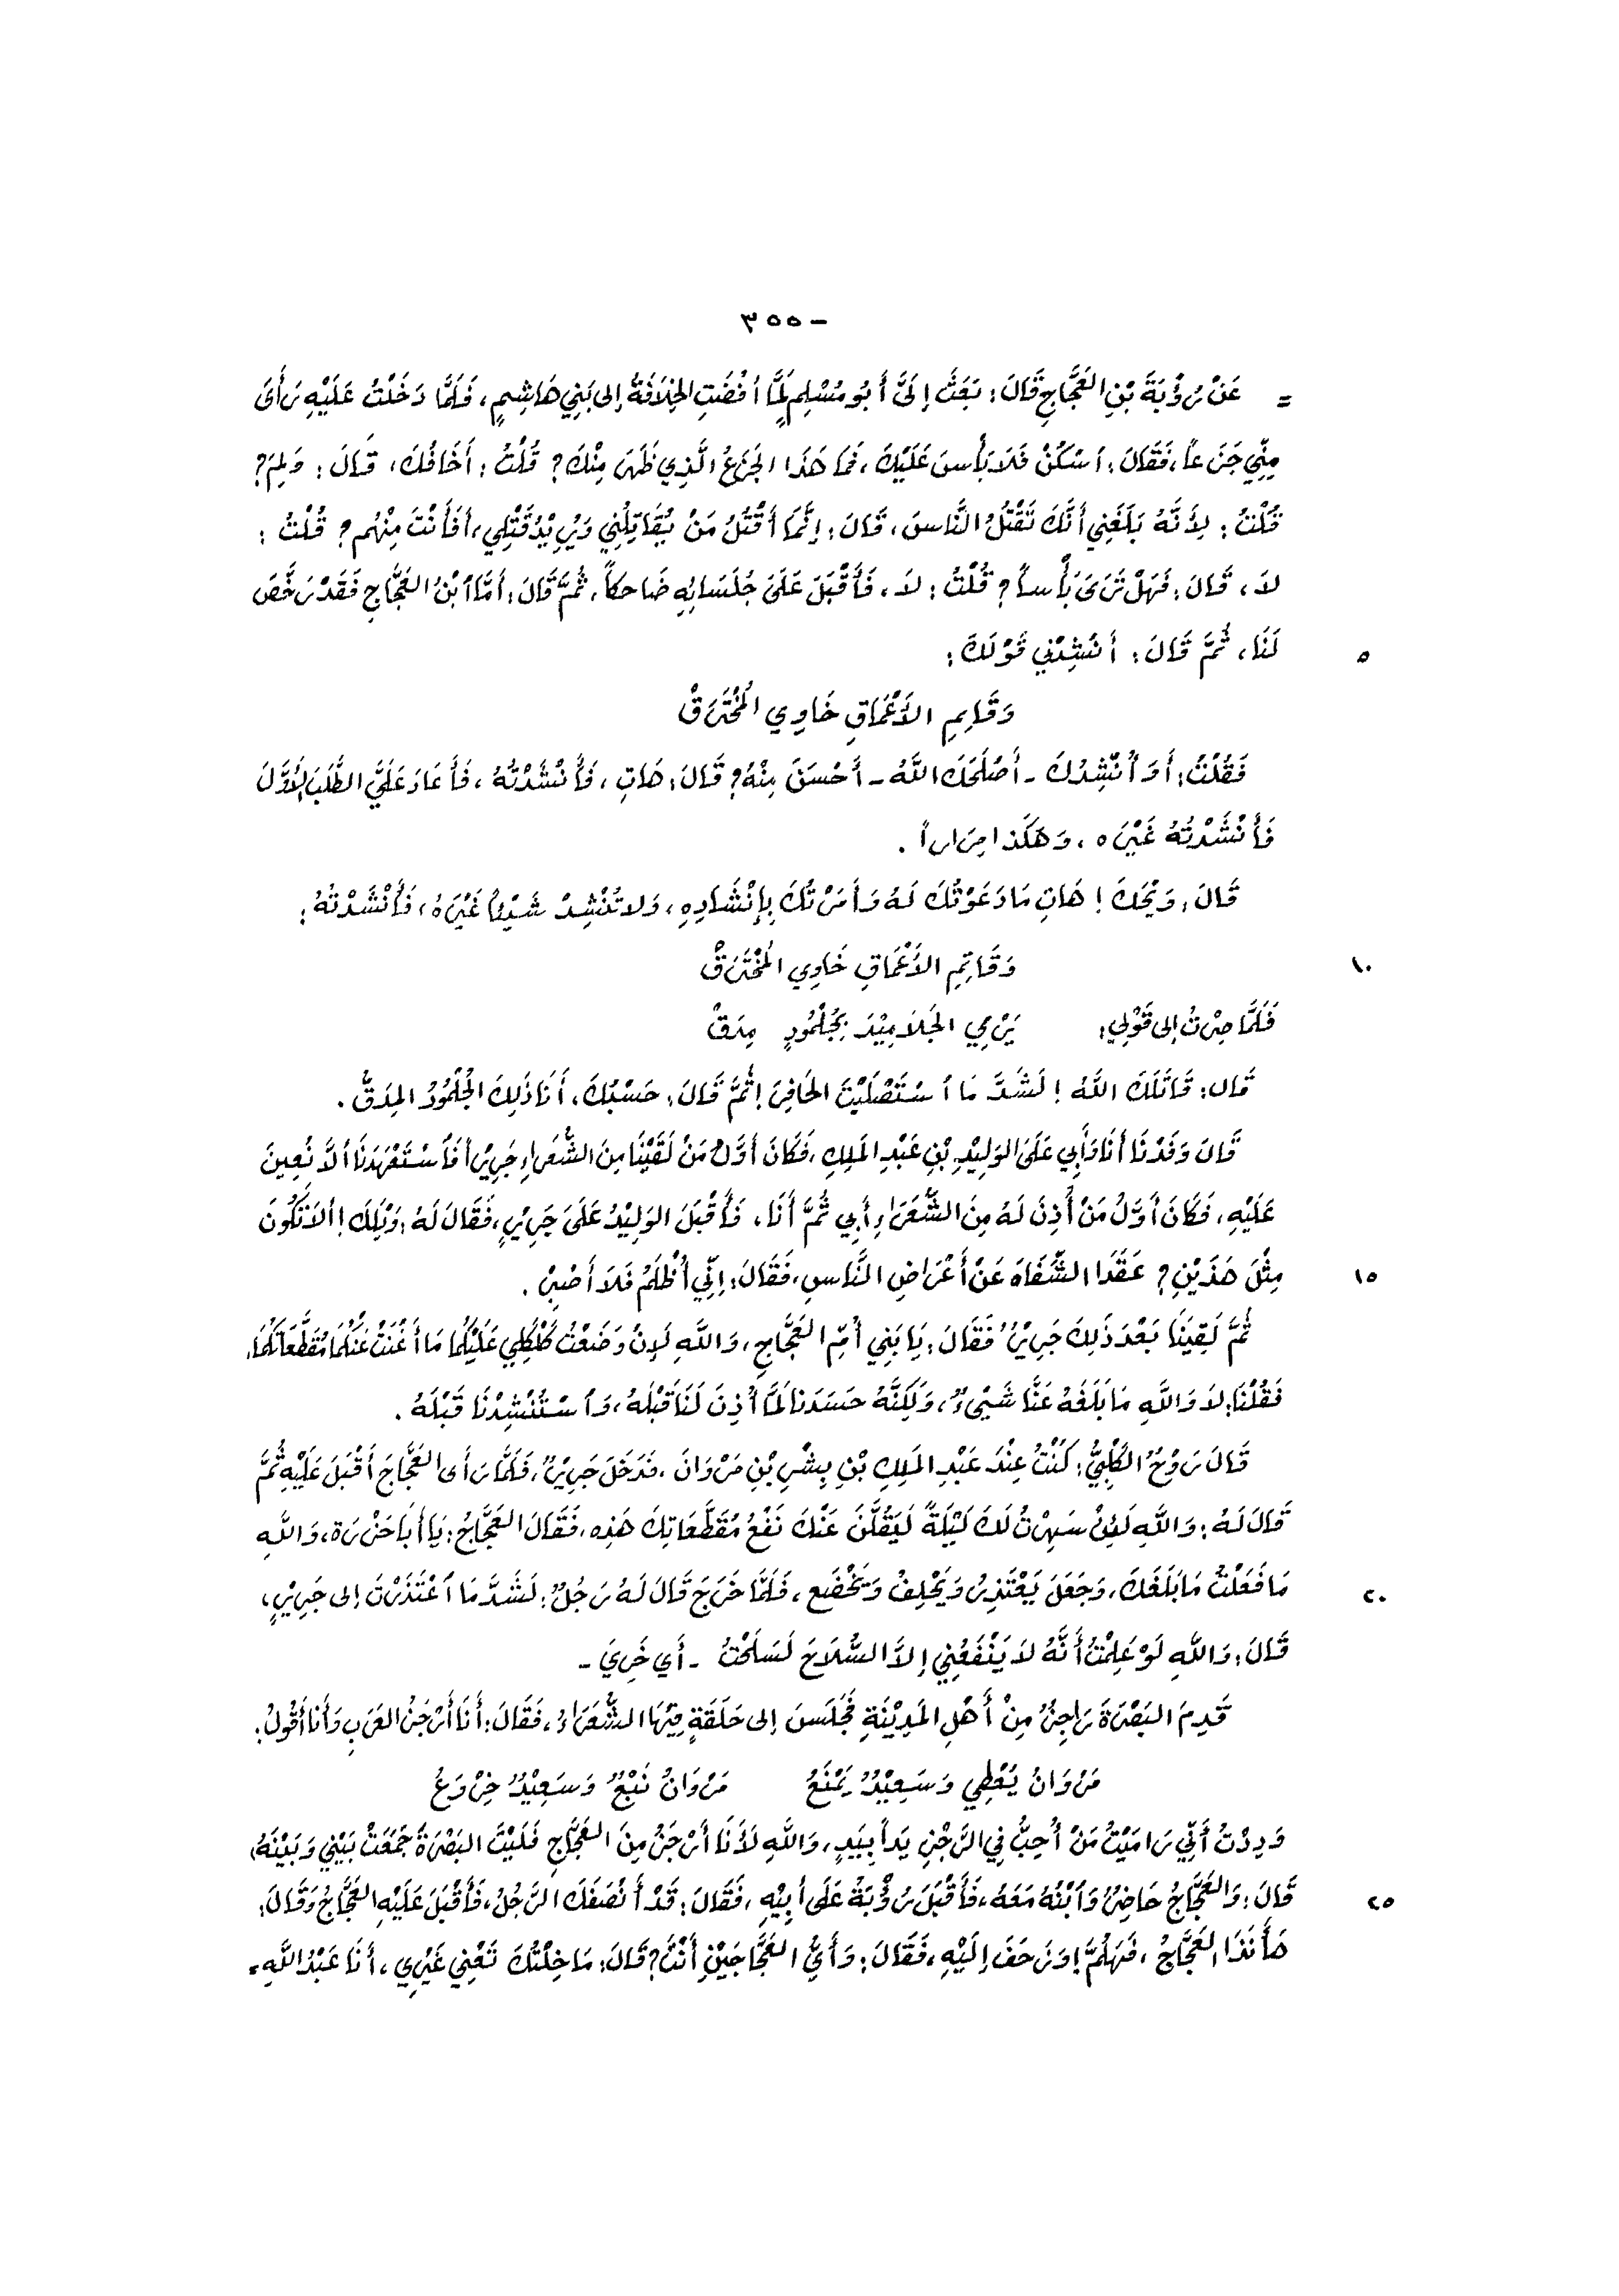 - ٣٥٥
= عَنْ رُؤْبَةَ بْنِ العَجَّاجِ قَالَ: بَعَثَ إِلَيَّ أَبُو مُسْلِمٍ لَمَّا أفْضَتِ الخِلَافَةُ إلى بَنِي هَاشِمٍ، فَلَمَّا دَخَلْتُ عَلَيْهِ رَأَى
مِنِّي جَزَعاً، فَقَالَ: اُسْكُنْ فَلَا بَأْسَ عَلَيْكَ، فَمَا هَذَا الجَزَعُ الَّذِي ظَهَرَ مِنْكَ؟ قُلْتُ: أَخَافُكَ، قَالَ: وَلِمَ؟
قُلْتُ: لِأَنَّهُ بَلَغَنِي أَنَّكَ تَقْتُلُ النَّاسَ، قَالَ: إِنَّمَا أَقْتُلُ مَنْ يُقَاتِلُنِي وَيُرِيْدُ قَتْلِي، أَفَأَنْتَ مِنْهُم؟ قُلْتُ:
لَا، قَالَ: فَهَلْ تَرَى بَأْساً؟ قُلْتُ: لَا، فَأَقْبَلَ عَلَى جُلَسَائِهِ ضَاحكاً، ثُمَّ قَالَ: أَمَّا اُبْنُ العَجَّاجِ فَقَدْ رَخَّصَ
٥ لَنَا، ثُمَّ قَالَ: أَنْشِدْنِي قَوْلَكَ:
وَقَائِمِ الأَعْمَاقِ خَاوِي المُخْتَرَقْ
فَقُلْتُ: أَوَ أُنْشِدُكَ - أَصْلَحَكَ اللَّهُ - أَحْسَنَ مِنْهُ؟ قَالَ: هَاتِ، فَأَنْشَدْتُهُ، فَأَعَادَ عَلَيَّ الطَّلَبَ الأَوَّلَ
فَأَنْشَدْتُهُ غَيْرَه، وَهَكَذا مِرَاراً.
قَالَ: وَيْحَكَ! هَاتِ مَا دَعَوْتُكَ لَهُ وَأَمَرْتُكَ بِإِنْشَادِهِ، وَلا تُنْشِدْ شَيْئاً غَيْرَهُ، فَأَنْشَدْتُهُ:
١٠ وَقَاتِمِ الأَعْمَاقِ خَاوِي المُخْتَرَقْ
فَلَمَّا صِرْتُ إلى قَوْلِي: يَرْمِي الجَلَامِيْدَ بِجُلْمُودٍ مِدَقْ
قَالَ: قَاتَلَكَ اللَّهُ! لَشَدَّ مَا اُسْتَصْلَيْتَ الحَافِرَ! ثُمَّ قَالَ: حَسْبُكَ، أَنَا ذَلِكَ الجُلْمُودُ المِدَقُّ.
قَالَ وَفَدْنَا أَنَا وَأَبِي عَلَى الوَلِيْدِ بْنِ عَبْدِ المَلِكِ، فَكَانَ أَوَّلُ مَنْ لَقِيْنَا مِنَ الشُّعَرَاءِ جَرِيْرٌ أَفَاسْتَعْهَدَنَا أَلاَّ نُعِينَ
عَلَيْهِ، فَكَانَ أَوَّلُ مَنْ أُذِنَ لَهُ مِنَ الشُّعَرَاءِ أَبِي ثُمَّ أَنَا، فَأَقْبَلَ الوَلِيْدُ عَلَى جَرِيْرٍ، فَقَالَ لَهُ: وَيْلَكَ! أَلَا تَكُونَ
١٥ مِثْلَ هَذَيْنِ؟ عَقَدَا الشِّفَاهَ عَنْ أَعْرَاضِ النَّاسِ، فَقَالَ: إِنِّي أُظْلَمُ فَلَا أَصْبِرُ.
ثُمَّ لَقِيَنَا بَعْدَ ذَلِكَ جَرِيْرٌ فَقَالَ: يَا بَنِي أُمِّ العَجَّاجِ، وَاللَّهِ لَإِنْ وَضَعْتُ كَلْكَلِي عَلَيْكُمَا مَا أَغْنَتْ عَنْكُمَا مُقَطَّعَاتُكُمَا،
فَقُلْنَا: لَا وَاللَّهِ مَا بَلَغَهُ عَنَّا شَيْءٌ، وَلَكِنَّهُ حَسَدَنا لَمَّا أُذِنَ لَنَا قَبْلَهُ، وَاُسْتُنْشِدْنَا قَبْلَهُ.
قَالَ رَوْحٌ الكَلْبِيُّ: كُنْتُ عِنْدَ عَبْدِ المَلِكِ بْنِ بِشْرِ بْنِ مَرْوَانَ، فَدَخَلَ جَرِيْرٌ، فَلَمَّا رَأَى العَجَّاجَ أَقْبَلَ عَلَيْهِ ثُمَّ
قَالَ لَهُ: وَاللَّهِ لَئِنْ سَهِرْتُ لَكَ لَيْلَةً لَيَقُلَّنَ عَنْكَ نَفْعُ مُقَطَّعَاتِكَ هَذِه، فَقَالَ العَجَّاجُ: يَا أَبَا حَزْرَة، وَاللَّهِ
٢٠ مَا فَعَلْتُ مَا بَلَغَكَ، وَجَعَلَ يَعْتَذِرُ وَيَحْلِفُ وَيَخْضَع، فَلَمَّا خَرَجَ قَالَ لَهُ رَجُلٌ: لَشَدَّ مَا اُعْتَذَرْتَ إلى جَرِيْرٍ،
قَالَ: وَاللَّهِ لَوْ عَلِمْتُ أَنَّهُ لَا يَنْفَعُنِي إِلاَّ السُّلَاحَ لَسَلَحْتُ - أَي خَرِيَ -
قَدِمَ البَصْرَةَ رَاجِزٌ مِنْ أَهْلِ المَدِيْنَةِ فَجَلَسَ إلى حَلَقَةٍ فِيْهَا الشُّعَرَاءُ، فَقَالَ: أَنَا أَرْجَزُ العَرَبِ وَأَنا أَقُولُ:
مَرْوَانُ يُعْطِي وَسَعِيْدٌ يَمْنَعُ مَرْوَانُ نَبْعٌ وَسَعِيْدٌ خِرْوَعُ
وَدِدْتُ أَنِّي رَامَيْتُ مَنْ أُحِبُّ فِي الرَّجْزِ يَداً بِيَدٍ، وَاللَّهِ لَأَنَا أَرْجَزُ مِنَ العَجَّاجِ فَلَيْتَ البَصْرَةَ جَمَعَتْ بَيْنِي وَبَيْنَهُ،
٢٥ قَالَ: وَالعَجَّاجُ حَاضِرٌ وَاُبْنُهُ مَعَهُ، فَأَقْبَلَ رُؤْبَةُ عَلَى أَبِيْهِ، فَقَالَ: قَدْ أَنْصَفَكَ الرَّجُلُ، فَأَقْبَلَ عَلَيْهِ العَجَّاجُ وَقَالَ:
هَأَنَذَا العَجَّاجُ، فَهَلُمَّ! وَزَحَفَ إِلَيْهِ، فَقَالَ: وَأَيُّ العَجَّاجَيْنِ أَنْتَ؟ قَالَ: مَا خِلْتُكَ تَعْنِي غَيْرِي، أَنَا عَبْدُ اللَّهِ =